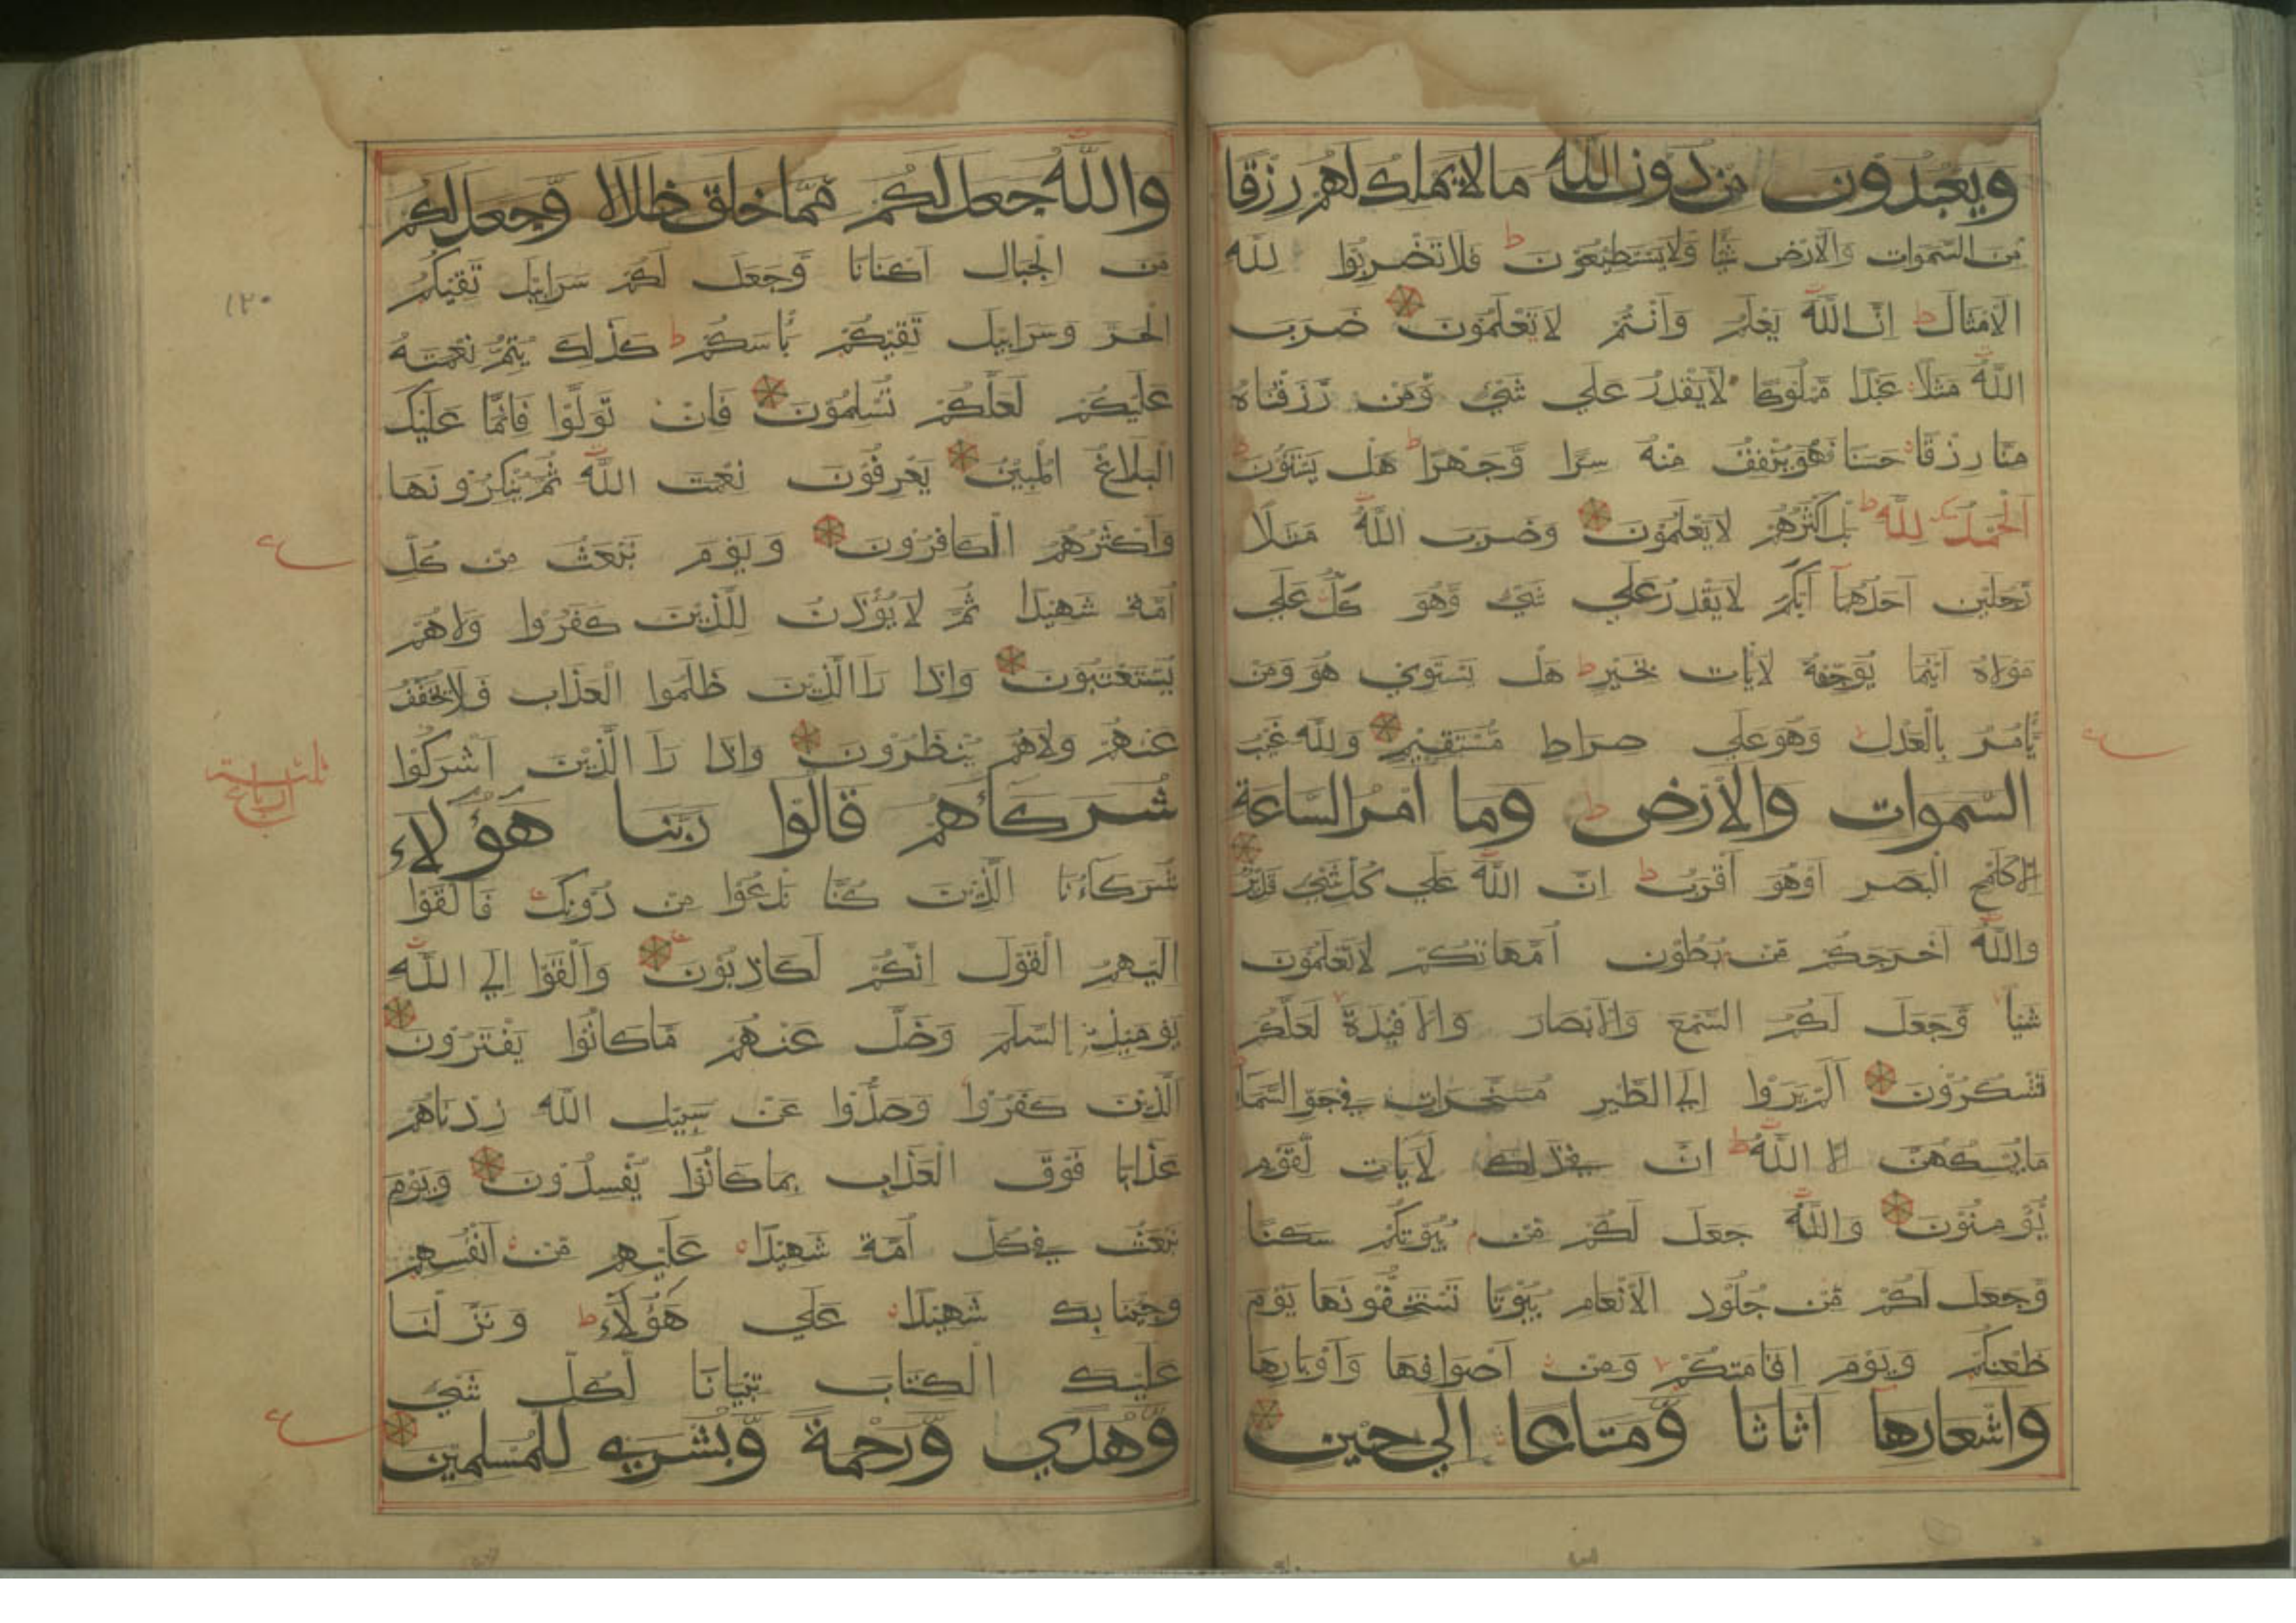 ويعبدون من دون الله مالا يملك لهم رزقا
من السموات والارض شيا ولا يستطيعون ط فلا تضربوا لله
الامثال ط ان الله يعلم وانتم لا تعلمون ضرب
الله مثلا عبدا مملوكا لا يقدر علي شئ ومن رزقناه
منا رزقا حسنا فهو ينفق منه سرا وجهرا ط هل يستوون
الحمد لله ط بل اكثرهم لا يعلمون وضرب الله مثلا
رجلين احدهما ابكم لا يقدر علي شئ وهو كل علي
مولاه اينما يوجهه لا يات بخير ط هل يستوي هو ومن
يامر بالعدل وهو علي صراط مستقيم ولله غيب
السموات والارض ط وما امر الساعة
الا كلمح البصر او هو اقرب ط ان الله علي كل شئ قدير
والله اخرجكم من بطون امهاتكم لا تعلمون
شيا وجعل لكم السمع والابصار والافيدة لعلكم
تشكرون الم يروا الي الطير مسخرات في جو السما
ما يمسكهن الا الله ط ان في ذلك لايات لقوم
يومنون والله جعل لكم من بيوتكم سكنا
وجعل لكم من جلود الانعام بيوتا تستخفونها يوم
ظعنكم ويوم اقامتكم ومن اصوافها واوبارها
واشعارها اثاثا ومتاعا الي حين
ع
والله جعل لكم مما خلق ظلالا وجعل لكم
من الجبال اكنانا وجعل لكم سرابيل تقيكم
الحر وسرابيل تقيكم باسكم ط كذلك يتم نعمته
عليكم لعلكم تسلمون فان تولوا فانما عليك
البلاغ المبين يعرفون نعمت الله ثم ينكرونها
واكثرهم الكافرون ويوم نبعث من كل
امة شهيدا ثم لا يؤذن للذين كفروا ولاهم
يستعتبون واذا را الذين ظلموا العذاب فلا يخفف
عنهم ولاهم ينظرون واذا را الذين اشركوا
شركاهم قالوا ربنا هؤلاء
شركاءنا الذين كنا ندعوا من دونك فالقوا
اليهم القول انكم لكاذبون والقوا الي الله
يومئذ السلم وضل عنهم ما كانوا يفترون
الذين كفروا وصدوا عن سبيل الله زدناهم
عذابا فوق العذاب بما كانوا يفسدون ويوم
نبعث في كل امة شهيدا عليهم من انفسهم
وجينا بك شهيدا علي هؤلاء ط ونزلنا
عليك الكتاب تبيانا لكل شئ
وهدي ورحمة وبشري للمسلمين
١٢٠
ع
ثلثة
ارباع
ع